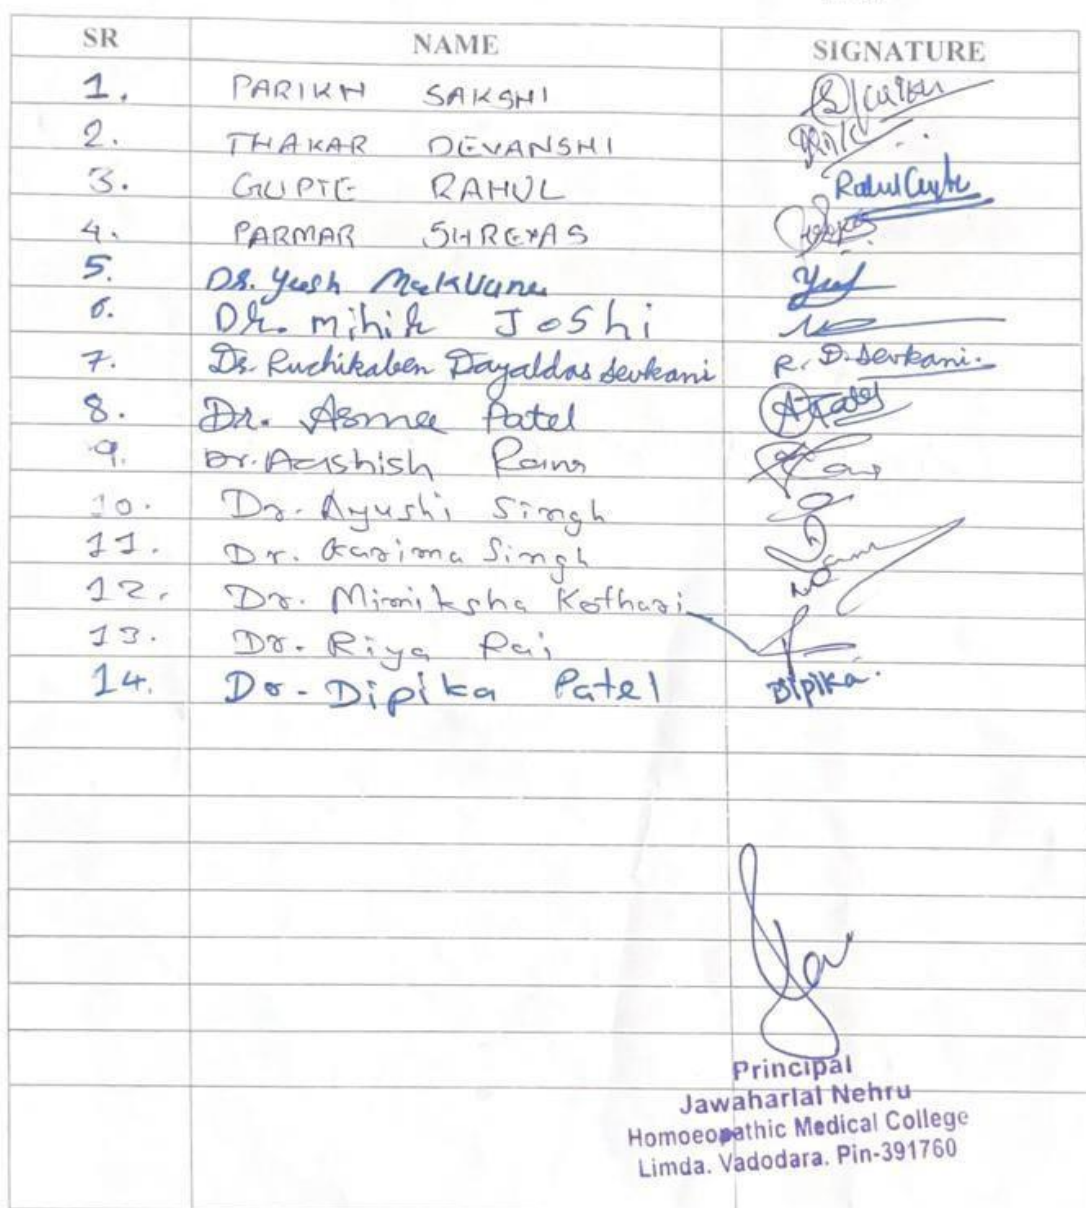 SR NAME SIGNATURE
1. PARIKH SAKSHI
2. THAKAR DEVANSHI
3. GUPTE RAHUL Rahul Gupte
4. PARMAR SHREYAS
5. Dr. Yash Makvana
6. Dr. Mihir Joshi
7. Dr. Ruchikaben Dayaldas Sevkani R. D. Sevkani.
8. Dr. Asmee Patel
9. Dr. Aashish
10. Dr. Ayushi Singh
11. Dr. Garima Singh
12. Dr. Mimiksha Kothari
13. Dr. Riya Rai
14. Dr. Dipika Patel Dipika.
Principal
Jawaharlal Nehru
Homoeopathic Medical College
Limda. Vadodara. Pin-391760